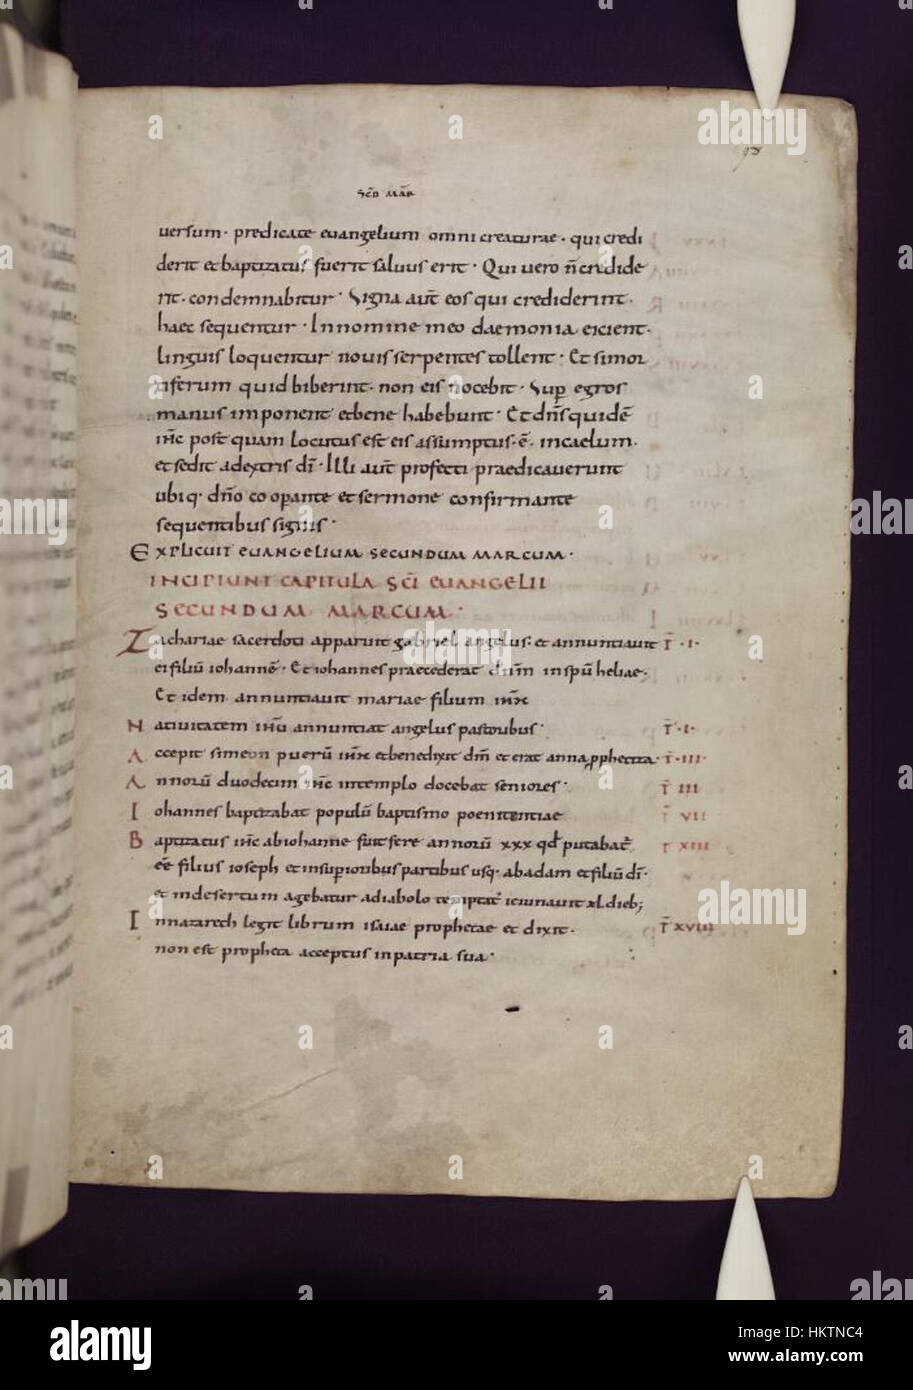 98
SCD MAR
uersum · predicate euangelium omni creaturae · qui credi
derit et baptizatus fuerit saluus erit · Qui uero n̄ credide
rit · condemnabitur · Signa aūt eos qui crediderint ·
haec sequentur · In nomine meo daemonia eicient ·
linguis loquentur nouis serpentes tollent · Et si mor
tiferum quid biberint · non eis nocebit · Sup̄ egros
manus imponent et bene habebunt · Et dn̄s quidē
ih̄c post quam locutus est eis assumptus · ē · in caelum ·
et sedit adextris dī · Illi aūt profecti praedicauerunt
ubiq · dn̄o cooperante et sermone confirmante
sequentibus signis ·
EXPLICUIT EUANGELIUM SECUNDUM MARCUM ·
INCIPIUNT CAPITULA SC̄I EUANGELII
SECUNDUM MARCUM ·
Zachariae sacerdoti apparuit gabriel angelus · et annuntiauit T̄ · I ·
ei filiū iohannē · Et iohannes praecederat dnm̄ in spū heliae ·
Et idem annuntiauit mariae filium ih̄m
Natiuitatem ih̄u annuntiat angelus pastoribus · T̄ · I ·
Accepit simeon puerū ih̄m et benedixit dm̄ et erat anna pphetiza · T̄ · III ·
Annorū duodecim ih̄c in templo docebat seniores · T̄ III
Iohannes baptizabat populū baptismo poenitentiae T̄ VII
Baptizatus ih̄c abiohanne fuit fere annorū xxx qd putabat̄ T̄ XIII
eē filius ioseph et insup̄ioribus partibus usq · ab adam et filiū dī ·
et in desertum agebatur adiabolo temptat̄ ieiunauit xl dieb;
In nazareth legit librum isaiae prophetae et dixit · T̄ XVIII
non est propheta acceptus in patria sua ·
alamy
Image ID: HKTNC4
www.alamy.com